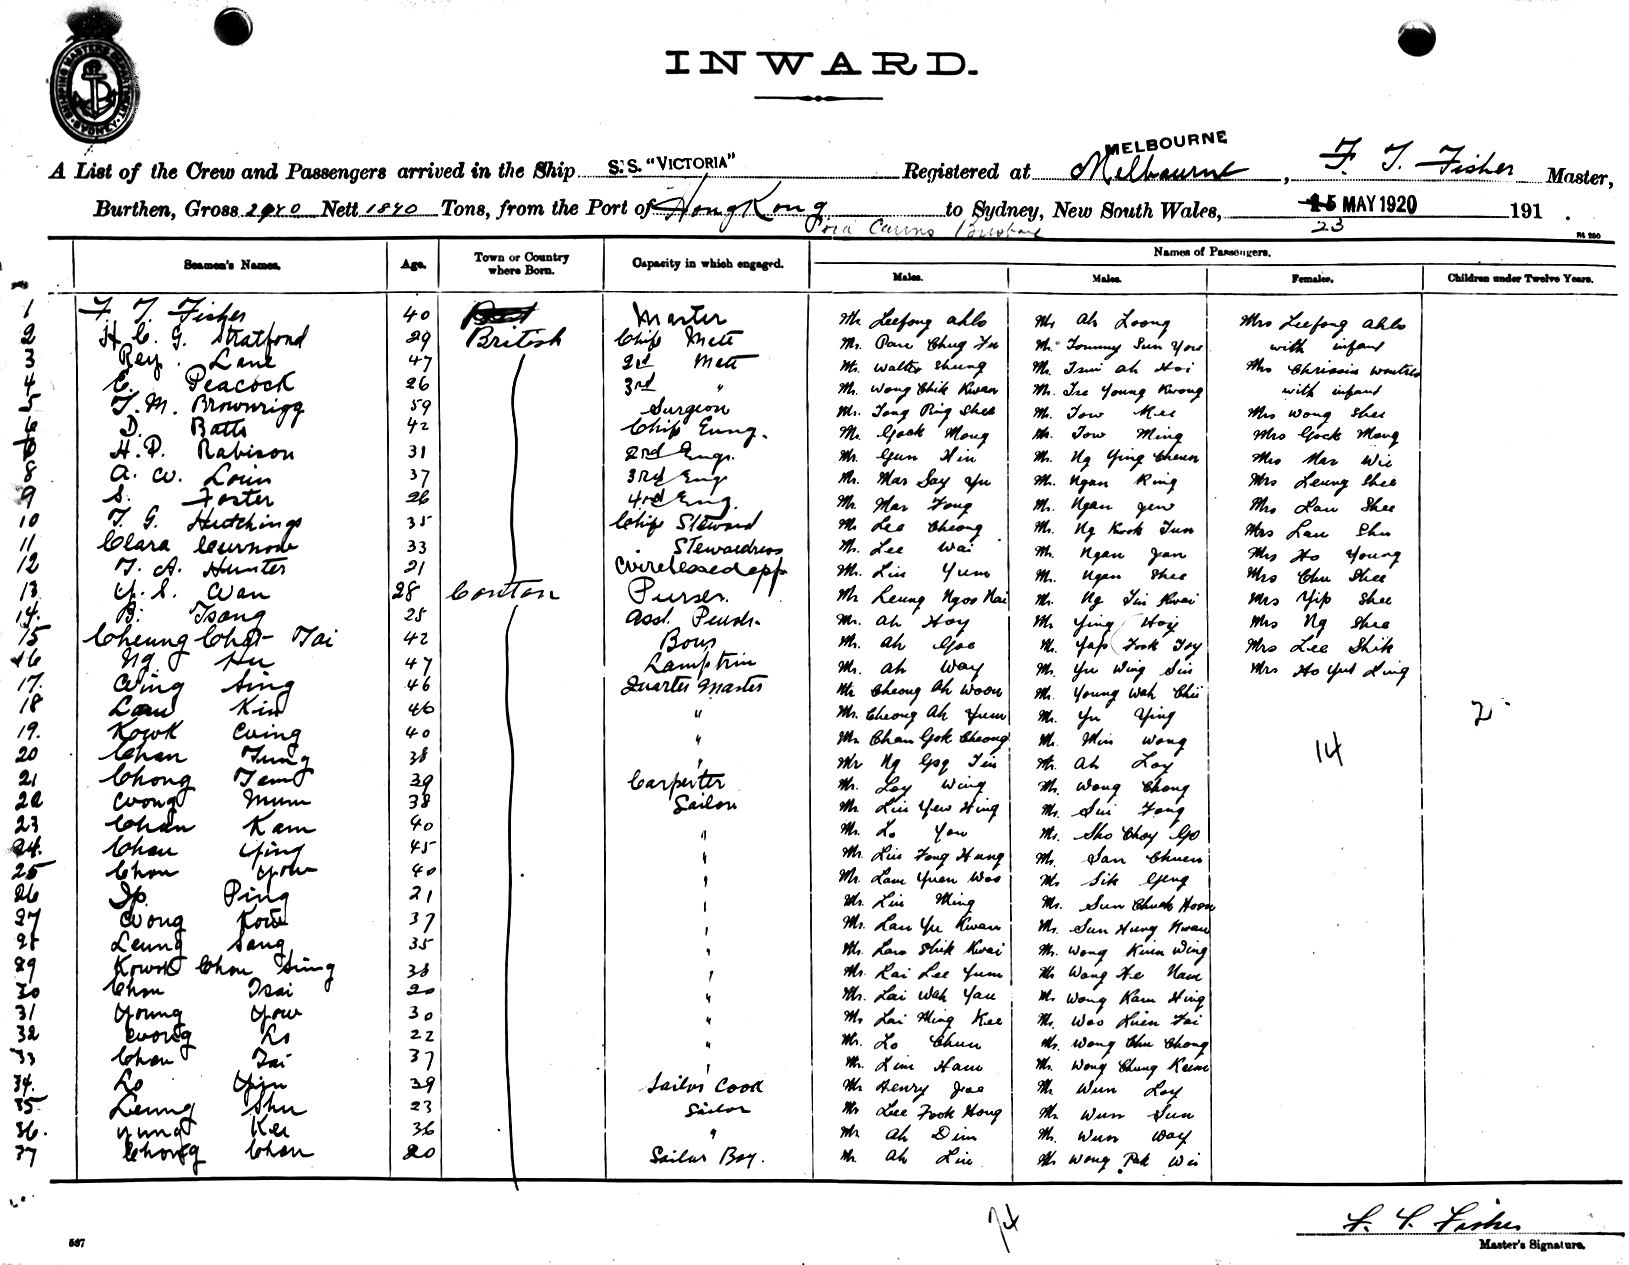 SHIPPING MASTERS DEPARTMENT SYDNEY
INWARD.
MELBOURNE
A List of the Crew and Passengers arrived in the Ship S.S. "VICTORIA" Registered at Melbourne, F. T. Fisher Master,
Burthen, Gross Nett 1840 Tons, from the Port of Hong Kong to Sydney, New South Wales, 15 MAY 1920 191 .
Cairns Brisbane 23
Seamen's Names. Age. Town or Country where Born. Capacity in which engaged. Names of Passengers.
Males. Males. Females. Children under Twelve Years.
1 F. T. Fisher 40 Master Mr Leefong Ahlo Mr Ah Loong Mrs Leefong Ahlo
2 H. C. G. Stratford 29 British Chip Mate Mr. Pau Chug Mr. Tommy Sun Yow with infant
3 Rey. Lane 47 2nd Mate Mr. Walter Shung Mr. Tsui Ah Hoi Mrs Chrissie
4 E. Peacock 26 3rd " Mr. Wong Chik Kwan Mr. Tse Young Kwong with infant
5 T. M. Brownrigg 59 Surgeon Mr. Tong Ping Shee Mr. Tow Mee Mrs Wong Shee
6 D. Batts 42 Chip Eung. Mr. Gock Mong Mr. Tow Ming Mrs Gock Mong
H. P. Rabison 31 2nd Engr. Mr. Gun Hin Mr. Ng Ying Cheun Mrs Mar Wie
8 A. W. Louis 37 3rd Eng Mr. Mar Say Yu Mr. Ngan King Mrs Leung Shee
9 S. Foster 26 4rd Eng. Mr. Mar Fong Mr. Ngan Jew Mrs Lau Shee
10 T. G. Hutchings 35 Chip Steward Mr Lee Cheong Mr. Ng Kwok Tun Mrs Lau Shu
11 Clara Curnow 33 Stewardress Mr. Lee Wai Mr. Ngan Jan Mrs Ho Young
12 T. A. Hunter 21 Mr. Liu Yum Mr. Ngan Shee Mrs Chu Shee
13 Y. S. Wan 28 Canton Purser. Mr Leung Ngoo Nai Mr. Ng Tin Kwai Mrs Yip Shee
14. B. Tsang 25 Asst. Mr. Ah Hoy Mr. Ying Hoy Mrs Ng Shee
15 Cheung Choi Tai 42 Mr. Ah Goe Mr. Yap Fook Toy Mrs Lee Shik
16 Ng Hu 47 Lamptrim Mr. Ah Way Mr. Yu Wing Sin Mrs Ho Yut Ling
17. Wing Sing 46 Quarter Master Mr Cheong Ah Woon Mr. Young Wah Chii
18 Lau Kin 46 " Mr. Cheong Ah Yum Mr. Yu Ying 2
19. Kowk Wing 40 " Mr Chan Gok Cheong Mr. Min Wong 14
20 Chan Tung 38 " Mr Ng Goq Tin Mr. Ah Loy
21 Chong Tam 39 Carpenter Mr. Loy Wing Mr. Wong Chong
22 Wong Mum 38 Sailor Mr. Liu Yew Hing Mr. Sui Fong
23 Chan Kam 40 " Mr. Lo You Mr. Sho Choy Go
24. Chan Ying 45 " Mr. Liu Fong Hung Mr. San Chuen
25 Chon Yow 40 " Mr. Lam Yuen Woo Mr Sik Geng
26 Ip. Ping 21 " Mr. Liu Ming Mr. Sun Chuck Hoon
27 Wong Kow 37 " Mr. Lau Yu Kwan Mr. Sun Hung Kwan
28 Leung Sang 35 " Mr. Law Shik Kwai Mr. Wong Kum Wing
29 Kowk Chou Sing 38 " Mr. Kai Lee Yum Mr Wong He Nam
30 Chou Tsai 20 " Mr. Lai Wah Yau Mr. Wong Kam Hing
31 Young Yow 30 " Mr Lai Ming Kee Mr. Woo Luen Tai
32 Wong Lo 22 " Mr. Lo Chun Mr. Wong Chu Chong
33 Chan Tai 37 " Mr. Lim Ham Mr. Wong Chung Keim
34. Lo Yin 39 Sailor Cook Mr Henry Joe Mr Wun Loy
35. Leung Shu 23 Sailor Mr Lee Fook Hong Mr. Wun Sun
36. Yung Kei 36 " Mr. Ah Dim Mr. Wun Way
37 Chong Chan 20 Sailor Boy. Mr. Ah Lin Mr Wong Pak Wei
74
F. T. Fisher
Master's Signature.
567